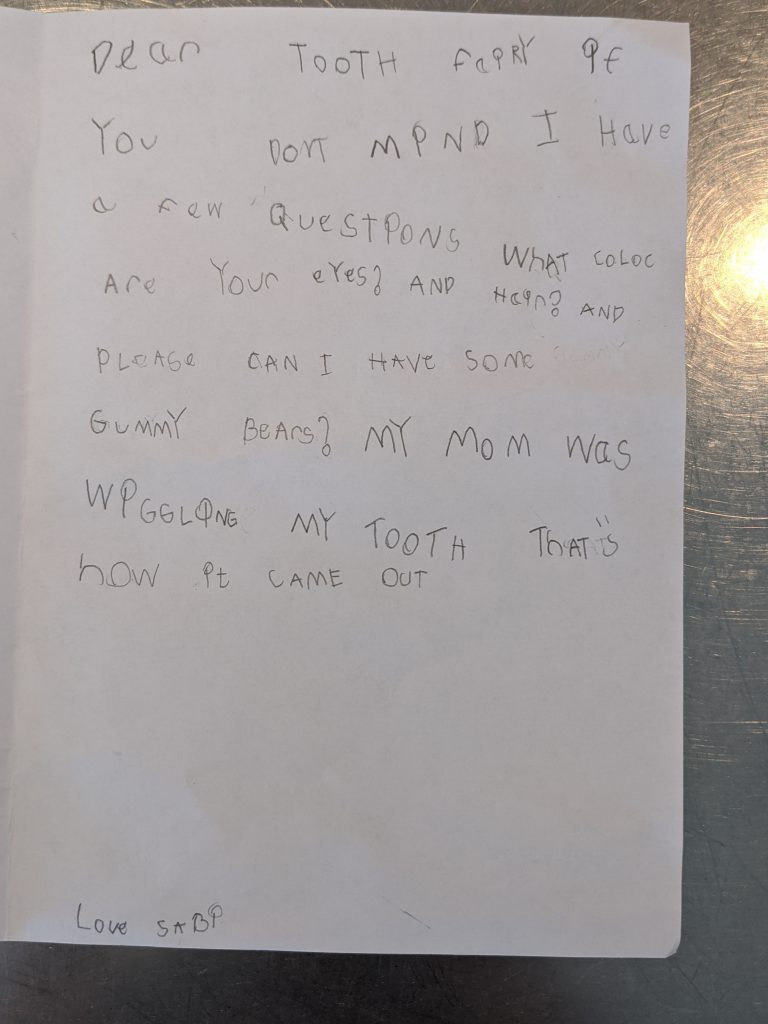 Dear TOOTH FaiRY if
You DONT MiND I Have
a few QUeStiONS
WhAT COLOr
Are Your eYes? AND Hair? AND
PLeASe CAN I HAVe SOMe
GUMMY BeArs? MY MOM Was
WiGGLiNG MY TOOTH ThAT"S
hOW it CAME OUT
Love SABi